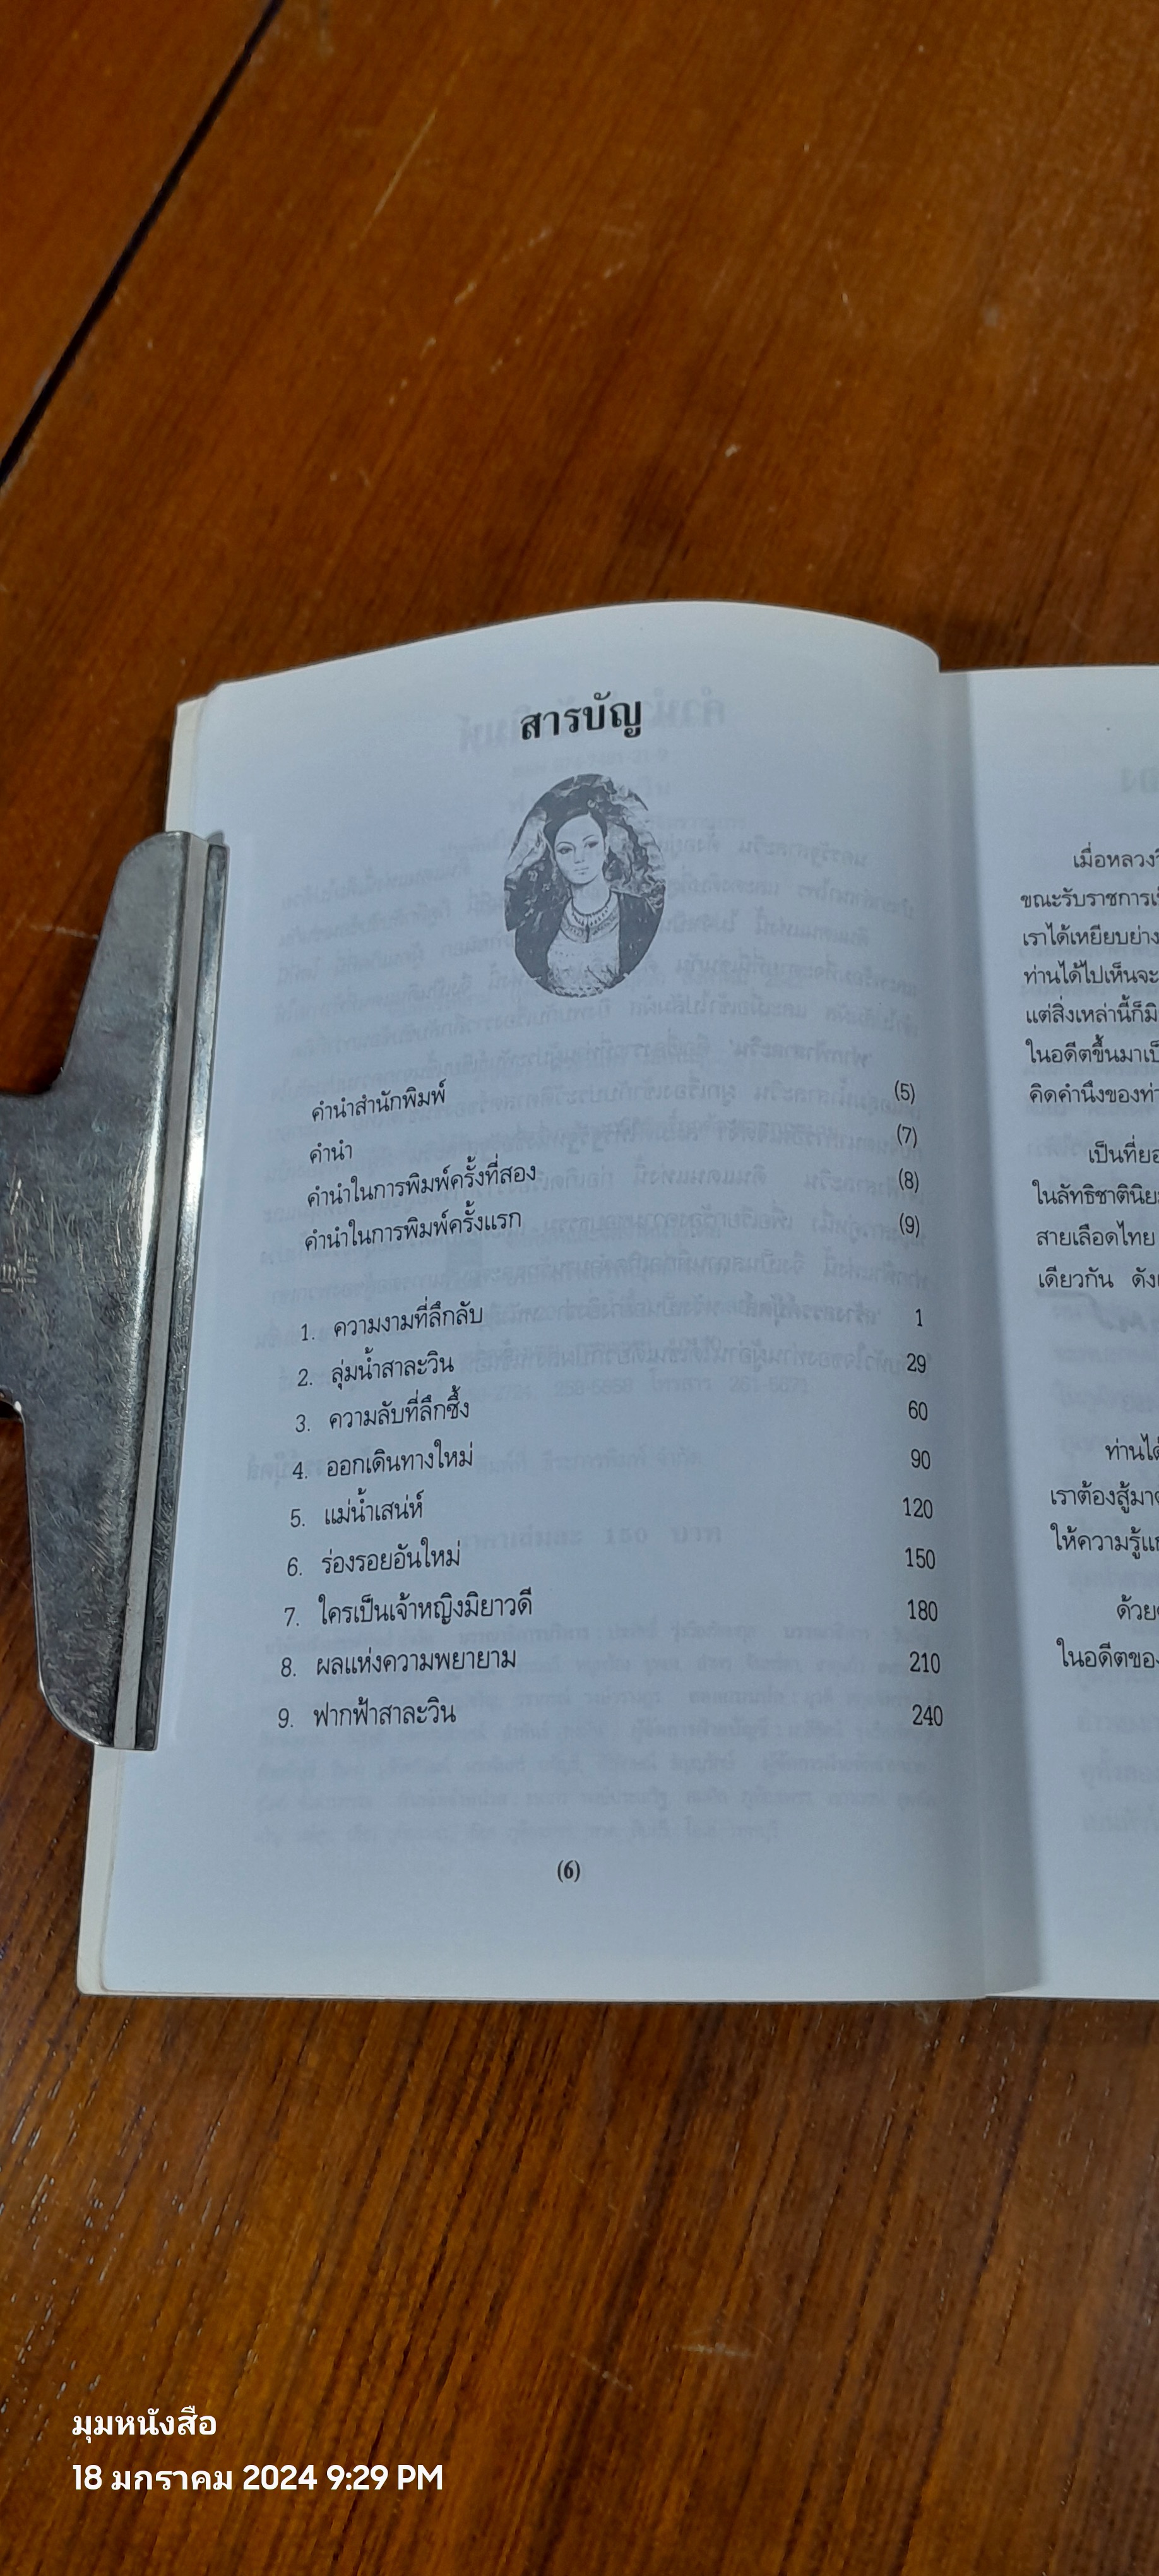 สารบัญ
คำนำสำนักพิมพ์ (5)
คำนำ (7)
คำนำในการพิมพ์ครั้งที่สอง (8)
คำนำในการพิมพ์ครั้งแรก (9)
1. ความงามที่ลึกลับ 1
2. ลุ่มน้ำสาละวิน 29
3. ความลับที่ลึกซึ้ง 60
4. ออกเดินทางใหม่ 90
5. แม่น้ำเสน่ห์ 120
6. ร่องรอยอันใหม่ 150
7. ใครเป็นเจ้าหญิงมิยาวดี 180
8. ผลแห่งความพยายาม 210
9. ฟากฟ้าสาละวิน 240
(6)
เมื่อหลวงวิ
ขณะรับราชการเป็
เราได้เหยียบย่าง
ท่านได้ไปเห็นจะ
แต่สิ่งเหล่านี้ก็มิ
ในอดีตขึ้นมาเป็
คิดคำนึงของท่า
เป็นที่ยอ
ในลัทธิชาตินิย
สายเลือดไทย
เดียวกัน ดัง
ท่านได้
เราต้องสู้มา
ให้ความรู้แ
ด้วย
ในอดีตของ
มุมหนังสือ
18 มกราคม 2024 9:29 PM